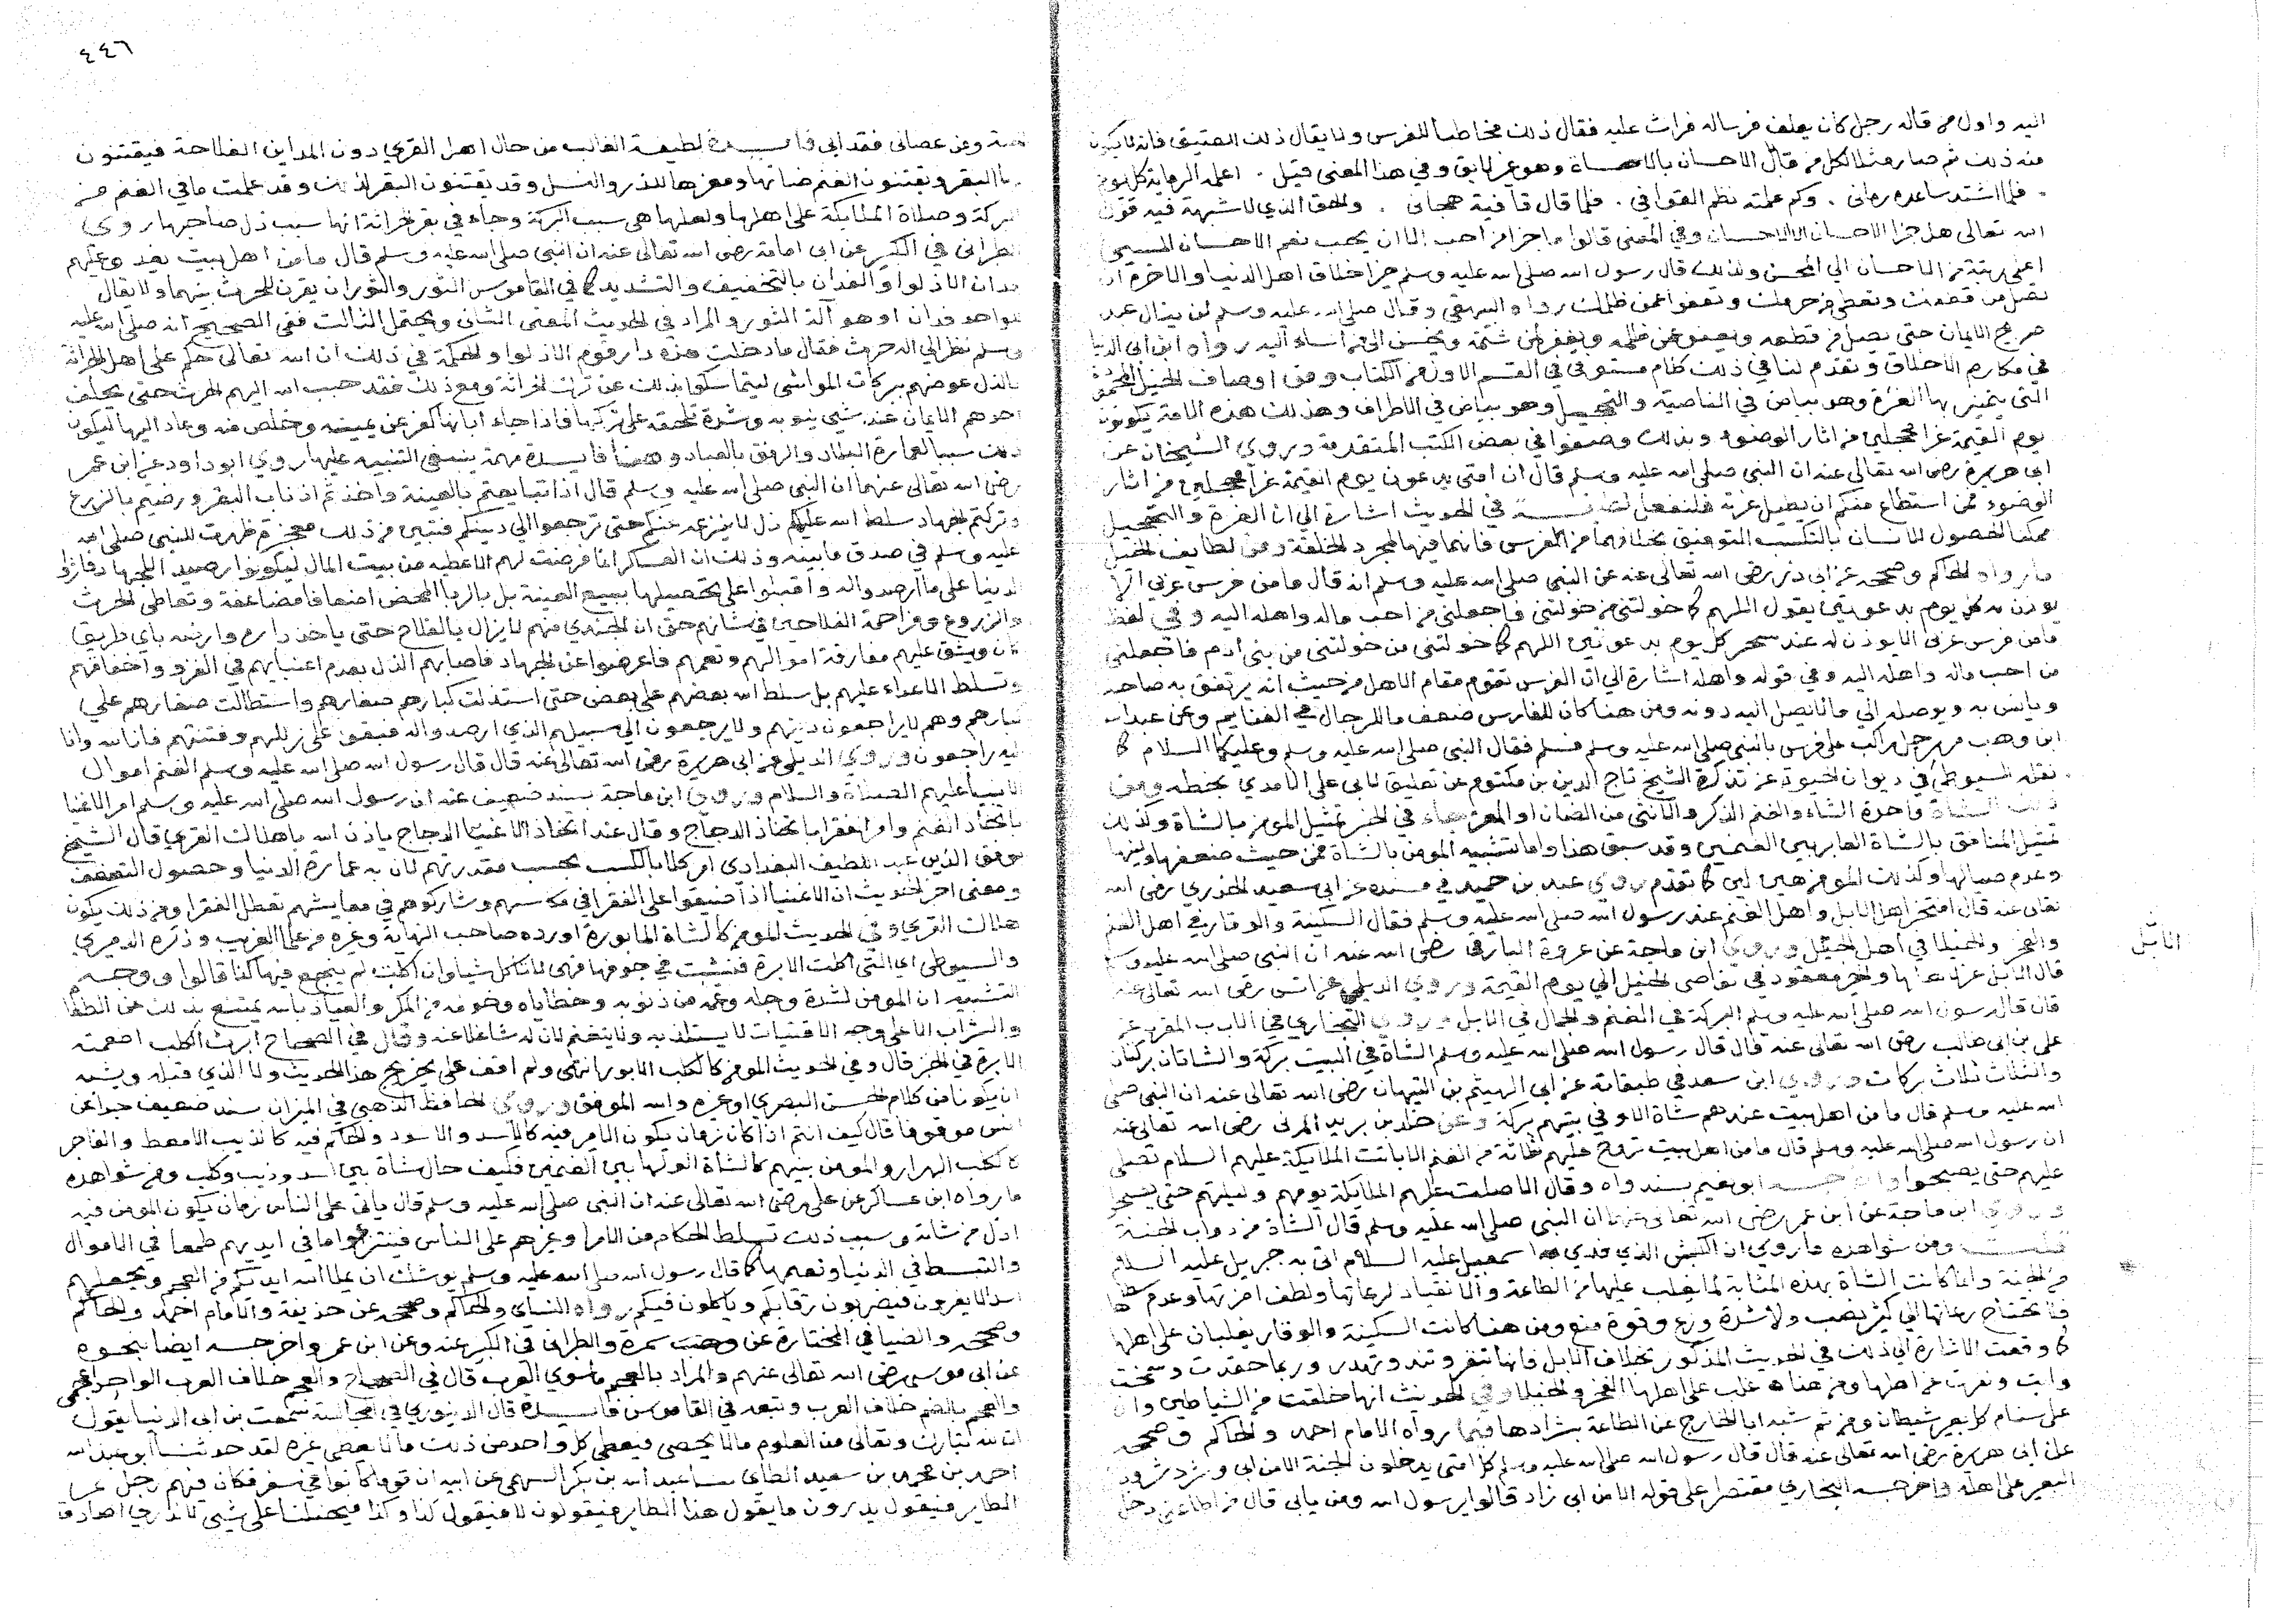 اليه واول من قاله رجل كان يعلف فرسا له فراث عليه فقال ذلك مخاطبا للفرس ولا يقال ذلك الصديق فانه لا يكون
منه ذلك ثم صار مثلا لكل من قال الاحسان بالاساة وهو غير لايق وفي هذا المعنى قيل . اعلمه الرماية كل يوم
. فلما اشتد ساعده رماني . وكم علمته نظم القوافي . فلما قال قافية هجاني . والحق الذي لا شبهة فيه قول
الله تعالى هل جزا الاحسان الا الاحسان وفي المعنى قالوا ما جزا من احب الا ان يحب نعم الاحسان الى المسي
اعلى رتبة من الاحسان الي المحسن ولذلك قال رسول الله صلى الله عليه وسلم خير اخلاق اهل الدنيا والاخرة ان
تصل من قطعك وتعطي من حرمك وتعفوا عمن ظلمك رواه البيهقي وقال صلى الله عليه وسلم لن ينال عبد
صريح الايمان حتى يصل من قطعه ويعفو عمن ظلمه ويغفر لمن شتمه ويحسن الى من اساء اليه رواه ابن ابي الدنيا
في مكارم الاخلاق وتقدم لنا في ذلك كلام مستوفى في القسم الاول من الكتاب ومن اوصاف الخيل المحمودة
التي يتميز بها الغرة وهو بياض في الناصية والتحجيل وهو بياض في الاطراف وكذلك هذه الامة يكونون
يوم القيمة غرا محجلين من اثار الوضوء وبذلك وصفوا في بعض الكتب المتقدمة وروى الشيخان عن
ابي هريرة رضى الله تعالى عنه ان النبي صلى الله عليه وسلم قال ان امتي يدعون يوم القيمة غرا محجلين من اثار
الوضوء فمن استطاع منكم ان يطيل غرته فليفعل لطيفة في الحديث اشارة الى ان الغرة والتحجيل
ممكنا الحصول للانسان بالتكسب التوفيق بخلافهما من الفرس فانهما فيها لمجرد الخلقة ومن لطايف الخيل
ما رواه الحاكم وصححه عن ابي ذر رضى الله تعالى عنه عن النبي صلى الله عليه وسلم انه قال ما من فرس عربي الا
يوذن له كل يوم بدعوتين يقول اللهم كما خولتني من خولتني فاجعلني من احب ماله واهله اليه وفي لفظ
ما من فرس عربي الا يوذن له عند سحر كل يوم بدعوتين اللهم كما خولتني من خولتني من بني ادم فاجعلني
من احب ماله واهله اليه وفي قوله واهله اشارة الى ان الفرس تقوم مقام الاهل من حيث انه يرتفق به صاحبه
ويانس به ويوصله الي ما لا يصل اليه دونه ومن هنا كان للفارس ضعف ما للرجال في الغنايم وعن عبد الله
ابن وهب مر رجل راكب على فرس بالنبي صلى الله عليه وسلم فسلم فقال النبي صلى الله عليه وسلم وعليكما السلام كما
نقله السيوطي في ديوان الحيوة عن تذكرة الشيخ تاج الدين بن مكتوم عن تعليق لابي على الامدي بخطه ومن
ذلك الشاة واحدة الشاء والغنم الذكر والانثى من الضان او المعز جاء في الخبر تمثيل المومن بالشاة وكذلك
تمثيل المنافق بالشاة العايرة بين الغنمين وقد سبق هذا واما تشبيه المومن بالشاة فمن حيث ضعفها ولينها
وعدم صيالها وكذلك المومن هين لين كما تقدم روى عبد بن حميد في مسنده عن ابي سعيد الخدري رضى الله
تعالى عنه قال افتخر اهل الابل واهل الغنم عند رسول الله صلى الله عليه وسلم فقال السكينة والوقار في اهل الغنم
والفخر والخيلا في اهل الخيل وروى ابن ماجة عن عروة البارقي رضى الله عنه ان النبي صلى الله عليه وسلم
الابل
قال الابل عز لاهلها والخير معقود في نواصي الخيل الى يوم القيمة وروى الديلمي عن انس رضى الله تعالى عنه
قال قال رسول الله صلى الله عليه وسلم البركة في الغنم والجمال في الابل وروى البخاري في الادب المفرد عن
على بن ابي طالب رضى الله تعالى عنه قال قال رسول الله صلى الله عليه وسلم الشاة في البيت بركة والشاتان بركتان
والثلاث ثلاث بركات وروى ابن سعد في طبقاته عن ابي الهيثم بن التيهان رضى الله تعالى عنه ان النبي صلى
الله عليه وسلم قال ما من اهل بيت عندهم شاة الا وفي بيتهم بركة وعن خالد بن يزيد المزني رضى الله تعالى عنه
ان رسول الله صلى الله عليه وسلم قال ما من اهل بيت تروح عليهم ثلاثة من الغنم الا باتت الملايكة عليهم السلام تصلى
عليهم حتى يصبحوا واخرجه ابو نعيم بسند واه وقال الا صلت عليهم الملايكة يومهم وليلتهم حتى يصبحوا
وروى ابن ماجة عن ابن عمر رضى الله تعالى عنهما ان النبي صلى الله عليه وسلم قال الشاة من دواب الجنة
قلت ومن شواهده ما روي ان الكبش الذي فدي به اسمعيل عليه السلام اتى به جبريل عليه السلام
من الجنة وانما كانت الشاة بهذه المثابة لما يغلب عليها من الطاعة والانقياد لرعاتها ولطف امزجتها وعدم
فلا تحتاج رعاتها الى كثير نصب ولا شدة وزع وقوة منع ومن هنا كانت السكينة والوقار يغلبان على اهلها
كما وقعت الاشارة الى ذلك في الحديث المذكور بخلاف الابل فانها تنفر وتند وتهدر وربما حقدت وسمخت
وابت ونفرت من اهلها ومن هنا غلب على اهلها الفخر والخيلا وفي الحديث انها خلقت من الشياطين وان
على سنام كل بعير شيطان ومن ثم شبه ابا الخارج عن الطاعة بشرادها فيما رواه الامام احمد والحاكم وصححه
عن ابي هريرة رضى الله تعالى عنه قال قال رسول الله صلى الله عليه وسلم كل امتى يدخلون الجنة الا من ابي وشرد شرود
البعير على اهله واخرجه البخاري مقتصرا على قوله الا من ابى زاد قالوا يا رسول الله ومن يابى قال من اطاعني دخل
٤٤٦
الجنة ومن عصاني فقد ابى فايدة لطيفة الغالب من حال اهل القرى دون المداين الفلاحة فيقتنون
لها البقر ويقتنون الغنم ضانها ومعزها للدر والنسل وقد يقتنون البقر لذلك وقد علمت ما في الغنم من
البركة وصلاة الملايكة على اهلها ولعلها هي سبب البركة وجاء في بقر الحراثة انها سبب ذل صاحبها روى
الطبراني في الكبير عن ابي امامة رضى الله تعالى عنه ان النبي صلى الله عليه وسلم قال ما من اهل بيت يغدو عليهم
فدان الا ذلوا والفدان بالتخفيف والتشديد كما في القاموس الثور والثوران يقرن للحرث بينهما ولا يقال
للواحد فدان او هو آلة الثور والمراد في الحديث المعنى الثاني ويحتمل الثالث ففي الصحيح انه صلى الله عليه
وسلم نظر الي الة حرث فقال ما دخلت هذه دار قوم الا ذلوا والحكمة في ذلك ان الله تعالى حكم على اهل الحراثة
بالذل عوضهم ببركات المواشي ليتماسكوا بذلك عن ترك الحراثة ومع ذلك فقد حبب الله اليهم الحرث حتى يحلف
احدهم الايمان عند شي ينوبه وشدة تلحقه على تركها فاذا جاء ابانها كفر عن يمينه وتخلص منه وعاد اليها ليكون
ذلك سببا لعمارة البلاد والرفق بالعباد وهنا فايدة مهمة ينبغي التنبيه عليها روى ابو داود عن ابن عمر
رضى الله تعالى عنهما ان النبي صلى الله عليه وسلم قال اذا تبايعتم بالعينة واخذتم اذناب البقر ورضيتم بالزرع
وتركتم الجهاد سلط الله عليكم ذل لا ينزعه عنكم حتى ترجعوا الي دينكم فتبين من ذلك معجزة ظهرت للنبي صلى الله
عليه وسلم في صدق ما بينه وذلك ان العساكر انما فرضت لهم الاعطية من بيت المال ليكونوا رصيد الجهاد فاثروا
الدنيا على ما ارصدوا له واقبلوا على تحصيلها ببيع العينة بل بالربا المحض اضعافا مضاعفة وتعاطي الحرث
والزروع ومزاحمة الفلاحين في شانهم حتى ان الجندي منهم لا يزال بالفلاح حتى ياخذ داره وارضه باي طريق
كان ويشق عليهم مفارقة اموالهم ونعمهم فاعرضوا عن الجهاد فاصابهم الذل بعدم اعتيادهم في الغزو واختفافهم
وتسلط الاعداء عليهم بل سلط الله بعضهم على بعض حتى استذلت كبارهم صغارهم واستطالت صغارهم على
كبارهم وهم لا يراجعون دينهم ولا يرجعون الى سبيلهم الذي ارصدوا له فبقوا على زللهم وفتنتهم فانا لله وانا
اليه راجعون وروى الديلمي عن ابي هريرة رضى الله تعالى عنه قال قال رسول الله صلى الله عليه وسلم الغنم اموال
الانبياء عليهم الصلاة والسلام وروى ابن ماجة بسند ضعيف عنه ان رسول الله صلى الله عليه وسلم امر الاغنيا
باتخاذ الغنم وامر الفقرا باتخاذ الدجاج وقال عند اتخاذ الاغنيا الدجاج ياذن الله باهلاك القرى قال الشيخ
موفق الدين عبد اللطيف البغدادي امر كلا بالكسب بحسب مقدرتهم لان به عمارة الدنيا وحصول التعفف
ومعنى اخر الحديث ان الاغنيا اذا ضيقوا على الفقرا في مكاسبهم وشاركوهم في معايشهم تعطل الفقرا ومن ذلك يكون
هلاك القرى وفي الحديث المومن كالشاة المابورة اورده صاحب النهاية وغيره من علما الغريب وذكره الدميري
والسيوطي اي التي اكلت الابرة فنشبت في جوفها فهي لا تاكل شيا وان اكلت لم ينجع فيها كذا قالوا ووجه
التشبيه ان المومن لشدة وجله وغمه من ذنوبه وخطاياه وخوفه من المكر والعياذ بالله يمتنع بذلك من الطعام
والشراب الا على وجه الاقتيات لا يستلذ به ولا يتنعم لان له شاغلا عنه وقال في الصحاح ابرت الكلب اطعمته
الابرة في الخبز قال وفي الحديث المومن كالكلب المابور انتهى ولم اقف على تخريج هذا الحديث ولا الذي قبله ويشبه
ان يكونا من كلام الحسن البصري او غيره والله الموفق وروى الحافظ الذهبي في الميزان بسند ضعيف جدا عن
انس موقوفا قال كيف انتم اذا كان زمان يكون الامير فيه كالاسد والاسود والحاكم فيه كالذيب الامعط والفاجر
كالكلب الهرار والمومن بينهم كالشاة الولها بين الغنمين فكيف حال شاة بين اسد وذيب وكلب ومن شواهده
ما رواه ابن عساكر عن على رضى الله تعالى عنه ان النبي صلى الله عليه وسلم قال ياتي على الناس زمان يكون المومن فيه
اذل من شاته وسبب ذلك تسلط الحكام من الامرا وغيرهم على الناس فينتزعوا ما في ايديهم طمعا في الاموال
والتبسط في الدنيا ونعمها كما قال رسول الله صلى الله عليه وسلم يوشك ان يملا الله ايديكم من العجم ويجعلهم
اسدا لا يفرون فيضربون رقابكم وياكلون فيئكم رواه النساي والحاكم وصححه عن حذيفة والامام احمد والحاكم
وصححه والضيا في المختارة عن سمرة والطبراني في الكبير عنه وعن ابن عمر واخرجه ايضا بنحوه
عن ابي موسى رضى الله تعالى عنهم والمراد بالعجم ما سوى العرب قال في الصحاح والعجم خلاف العرب الواحد عجمي
والعجم بالضم خلاف العرب وتبعه في القاموس فايدة قال الدينوري في المجالسة سمعت بن ابي الدنيا يقول
ان لله تبارك وتعالى من العلوم ما لا يحصى فيعطي كل واحد من ذلك ما لا يعطى غيره لقد حدثنا ابو عبد الله
احمد بن محمد بن سعيد الطاي عبد الله بن بكر السهمي عن ابيه ان قوما كانوا في سفر فكان فيهم رجل
الطاير فيقول يدرون ما يقول هذا الطاير فيقولون لا فيقول كذا وكذا فيحيلنا على شي لا ندري اصادق